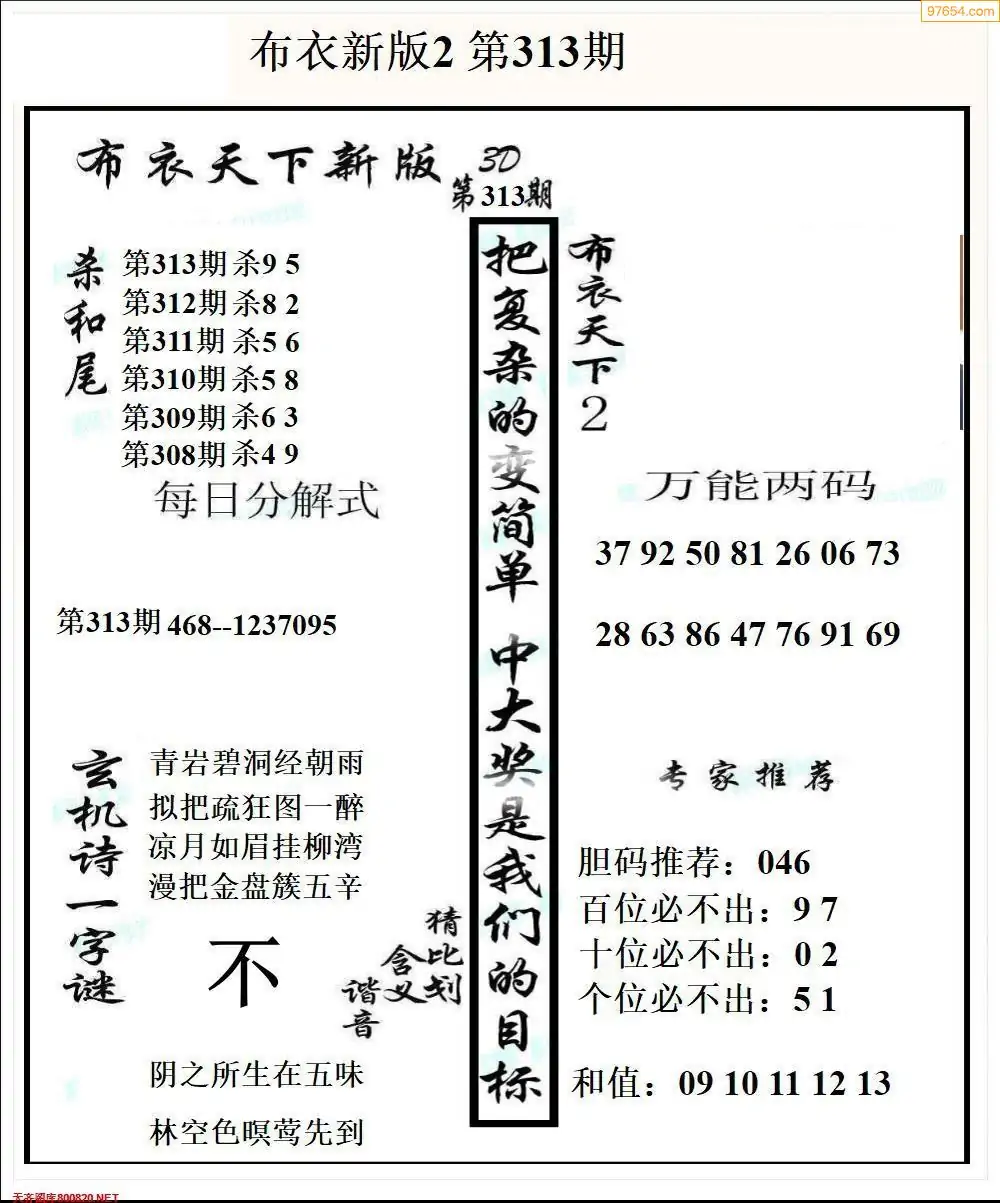 97654.com
布衣新版2 第313期
布衣天下新版
3D
第313期
杀和尾
第313期 杀9 5
第312期 杀8 2
第311期 杀5 6
第310期 杀5 8
第309期 杀6 3
第308期 杀4 9
每日分解式
第313期 468--1237095
玄机诗一字谜
青岩碧洞经朝雨
拟把疏狂图一醉
凉月如眉挂柳湾
漫把金盘簇五辛
不
猜比划
含义
谐音
阴之所生在五味
林空色暝莺先到
把复杂的变简单 中大奖是我们的目标
布衣天下2
万能两码
37 92 50 81 26 06 73
28 63 86 47 76 91 69
专家推荐
胆码推荐：046
百位必不出：9 7
十位必不出：0 2
个位必不出：5 1
和值：09 10 11 12 13
天齐图库800820.NET